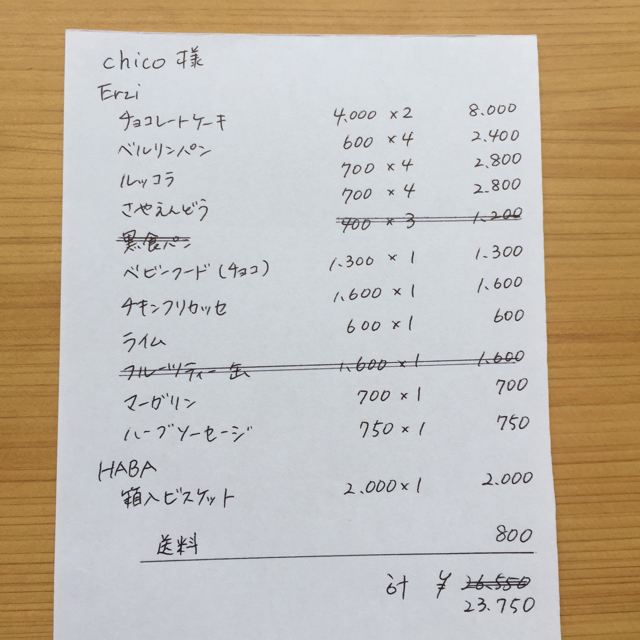 chico 様
Erzi
チョコレートケーキ 4.000 × 2 8.000
ベルリンパン 600 × 4 2.400
ルッコラ 700 × 4 2.800
さやえんどう 700 × 4 2.800
黒食パン 400 × 3 1.200
ベビーフード(チョコ) 1.300 × 1 1.300
チキンフリカッセ 1.600 × 1 1.600
ライム 600 × 1 600
フルーツティー缶 1.600 × 1 1.600
マーガリン 700 × 1 700
ハーブソーセージ 750 × 1 750
HABA
箱入ビスケット 2.000 × 1 2.000
送料 800
計 ¥ 26.550
23.750